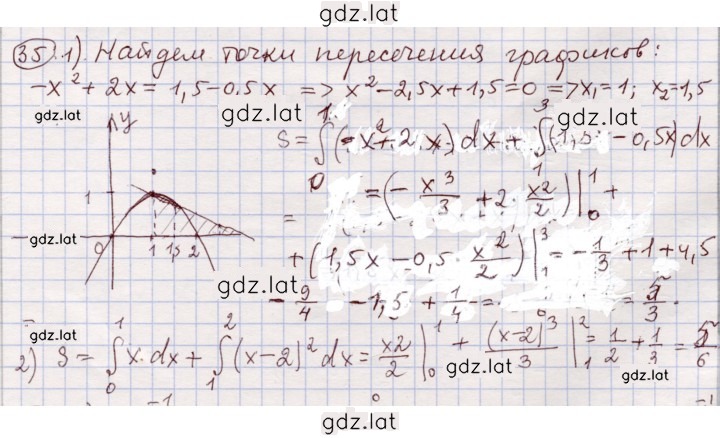 gdz.lat
35 1). Найдем точки пересечения графиков:
-x² + 2x = 1,5 - 0.5x => x² - 2,5x + 1,5 = 0 => x₁ = 1; x₂ = 1,5
gdz.lat gdz.lat gdz.lat
y
S = ∫₀¹ (-x² + 2x) dx + ∫₁³ (1,5 - 0,5x) dx
gdz.lat
1
= = (- x³/3 + 2 · x²/2) |₀¹ +
gdz.lat
0 1 1,5 2
+ (1,5x - 0,5 · x²/2) |₁³ = - 1/3 + 1 + 4,5
gdz.lat
- 9/4 - 1,5 + 1/4 = = 5/3.
gdz.lat gdz.lat
2) S = ∫₀¹ x · dx + ∫₁² (x-2)² dx = x2/2 |₀¹ + (x-2)³/3 |₁² = 1/2 + 1/3 = 5/6
gdz.lat gdz.lat
gdz.lat